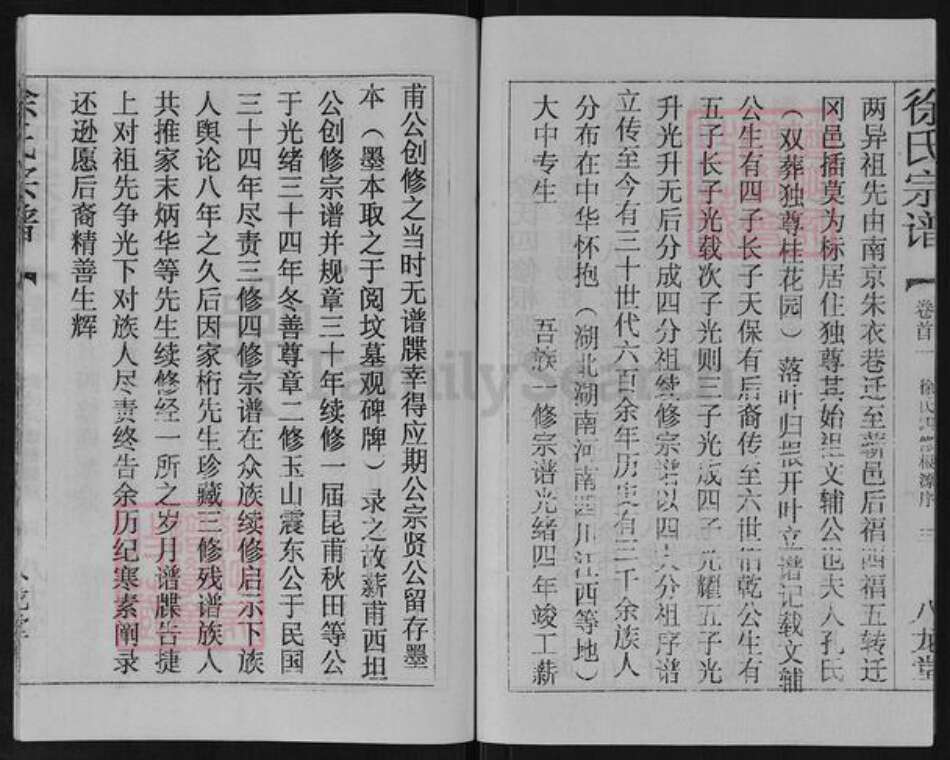 徐氏宗谱
卷首一
八龙堂
两异祖先由南京朱衣巷迁至蕲邑后福西福五转迁
冈邑插莫为标居住独尊其始祖文辅公也夫人孔氏
（双葬独尊桂花园）落叶归根开叶立谱记载文辅
公生有四子长子天保有后裔传至六世伯乾公生有
五子长子光载次子光则三子光成四子光耀五子光
升光升无后分成四分祖续修宗谱以四大分祖序谱
立传至今有三十世代六百余年历史有三千余族人
分布在中华怀抱（湖北湖南河南四川江西等地）
大中专生 吾族一修宗谱光绪四年竣工薪
甫公创修之当时无谱牒幸得应期公宗贤公留存墨
本（墨本取之于阅坟墓观碑牌）录之故薪甫西坦
公创修宗谱并规章三十年续修一届昆甫秋田等公
于光绪三十四年冬善尊章二修玉山震东公于民国
三十四年尽责三修四修宗谱在众族续修启示下族
人舆论八年之久后因家桁先生珍藏三修残谱族人
共推家末炳华等先生续修经一所之岁月谱牒告捷
上对祖先争光下对族人尽责终告余历纪寒素阐录
还逊愿后裔精善生辉
FamilySearch